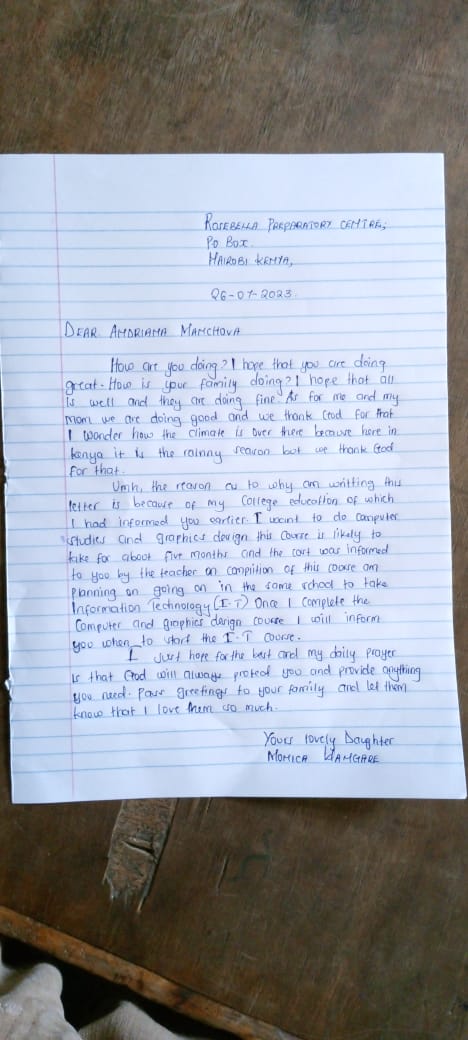 ROSEBELLA PREPARATORY CENTRE,
PO BOX.
NAIROBI KENYA,
26-07-2023.
DEAR ANDRIANA MANCHOVA
How are you doing? I hope that you are doing
great. How is your family doing? I hope that all
is well and they are doing fine. As for me and my
mom we are doing good and we thank God for that
I wonder how the climate is over there because here in
kenya it is the rainny season but we thank God
for that.
Umh, the reason as to why am writting this
letter is because of my College education of which
I had informed you earlier. I want to do computer
studies and graphics design this course is likely to
take for about five months and the cost was informed
to you by the teacher on complition of this course am
planning on going on in the same school to take
Information Technology (I-T) Once I complete the
Computer and graphics design course I will inform
you when to start the I-T course.
I Just hope for the best and my daily prayer
is that God will always protect you and provide anything
you need. Pass greetings to your family and let them
know that I love them so much.
Yours lovely Daughter
MONICA WANGARE